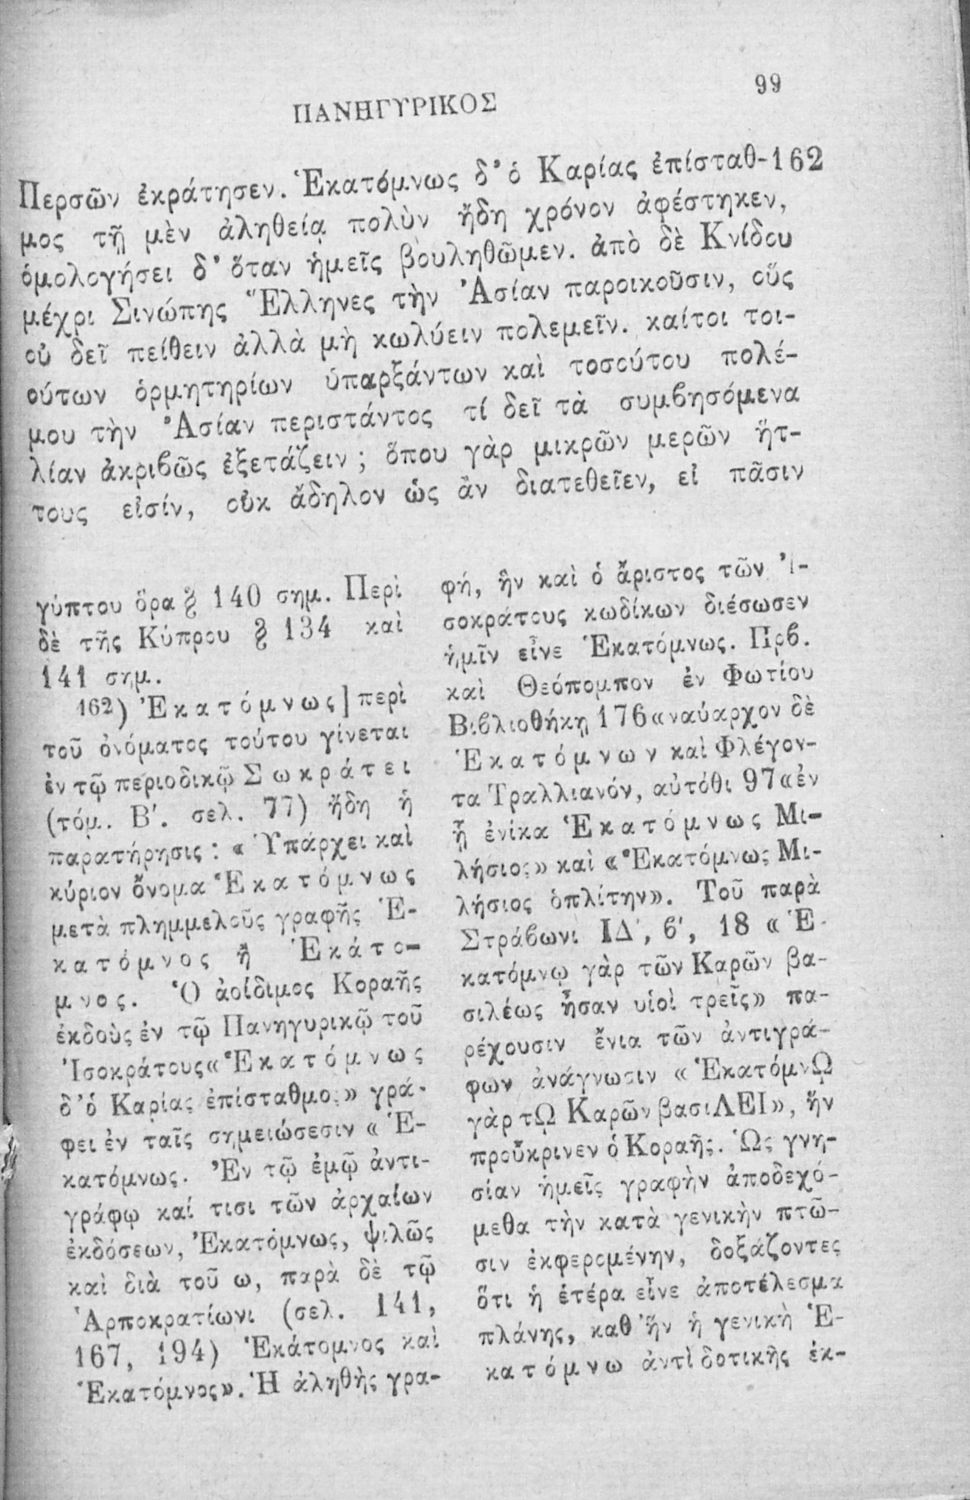 ΠΑΝΗΓΥΡΙΚΟΣ
99
Περσῶν ἐκράτησεν. Ἑκατόμνως δ' ὁ Καρίας ἐπίσταθ-162
μος τῇ μὲν ἀληθείᾳ πολὺν ἤδη χρόνον ἀφέστηκεν,
ὁμολογήσει δ' ὅταν ἡμεῖς βουληθῶμεν. ἀπὸ δὲ Κνίδου
μέχρι Σινώπης Ἕλληνες τὴν Ἀσίαν παροικοῦσιν, οὓς
οὐ δεῖ πείθειν ἀλλὰ μὴ κωλύειν πολεμεῖν. καίτοι τοι-
ούτων ὁρμητηρίων ὑπαρξάντων καὶ τοσούτου πολέ-
μου τὴν Ἀσίαν περιστάντος τί δεῖ τὰ συμβησόμενα
λίαν ἀκριβῶς ἐξετάζειν ; ὅπου γὰρ μικρῶν μερῶν ἥτ-
τους εἰσίν, οὐκ ἄδηλον ὡς ἂν διατεθεῖεν, εἰ πᾶσιν
γύπτου ὅρα § 140 σημ. Περὶ
δὲ τῆς Κύπρου § 134 καὶ
141 σημ.
162) Ἑκατόμνως] περὶ
τοῦ ὀνόματος τούτου γίνεται
ἐν τῷ περιοδικῷ Σωκράτει
(τόμ. Β'. σελ. 77) ἤδη ἡ
παρατήρησις : « Ὑπάρχει καὶ
κύριον ὄνομα Ἑκατόμνως
μετὰ πλημμελοῦς γραφῆς Ἑ-
κατόμνος ἢ Ἑκάτο-
μνος. Ὁ ἀοίδιμος Κοραῆς
ἐκδοὺς ἐν τῷ Πανηγυρικῷ τοῦ
Ἰσοκράτους «Ἑκατόμνως
δ' ὁ Καρίας ἐπίσταθμος» γρά-
φει ἐν ταῖς σημειώσεσιν « Ἑ-
κατόμνως. Ἐν τῷ ἐμῷ ἀντι-
γράφῳ καί τισι τῶν ἀρχαίων
ἐκδόσεων, Ἐκατόμνως, ψιλῶς
καὶ διὰ τοῦ ω, παρὰ δὲ τῷ
Ἁρποκρατίωνι (σελ. 141,
167, 194) Ἑκάτομνος καὶ
Ἑκατόμνος». Ἡ ἀληθὴς γρα-
φή, ἣν καὶ ὁ ἄριστος τῶν Ἰ-
σοκράτους κωδίκων διέσωσεν
ἡμῖν εἶνε Ἑκατόμνως. Πρβ.
καὶ Θεόπομπον ἐν Φωτίου
Βιβλιοθήκῃ 176 «ναύαρχον δὲ
Ἑκατόμνων καὶ Φλέγον-
τα Τραλλιανόν, αὐτόθι 97 «ἐν
ᾗ ἐνίκα Ἑκατόμνως Μι-
λήσιος» καὶ «Ἑκατόμνως Μι-
λήσιος ὁπλίτην». Τοῦ παρὰ
Στράβωνι ΙΔ', β', 18 « Ἑ-
κατόμνῳ γὰρ τῶν Καρῶν βα-
σιλέως ἦσαν υἱοὶ τρεῖς» πα-
ρέχουσιν ἔνια τῶν ἀντιγρά-
φων ἀνάγνωσιν « ἙκατόμνΩ
γὰρ τΩ Καρῶν βασιΛΕΙ», ἣν
προὔκρινεν ὁ Κοραῆς. Ὡς γνη-
σίαν ἡμεῖς γραφὴν ἀποδεχό-
μεθα τὴν κατὰ γενικὴν πτῶ-
σιν ἐκφερομένην, δοξάζοντες
ὅτι ἡ ἑτέρα εἶνε ἀποτέλεσμα
πλάνης, καθ' ἣν ἡ γενικὴ Ἑ-
κατόμνω ἀντὶ δοτικῆς ἐκ-